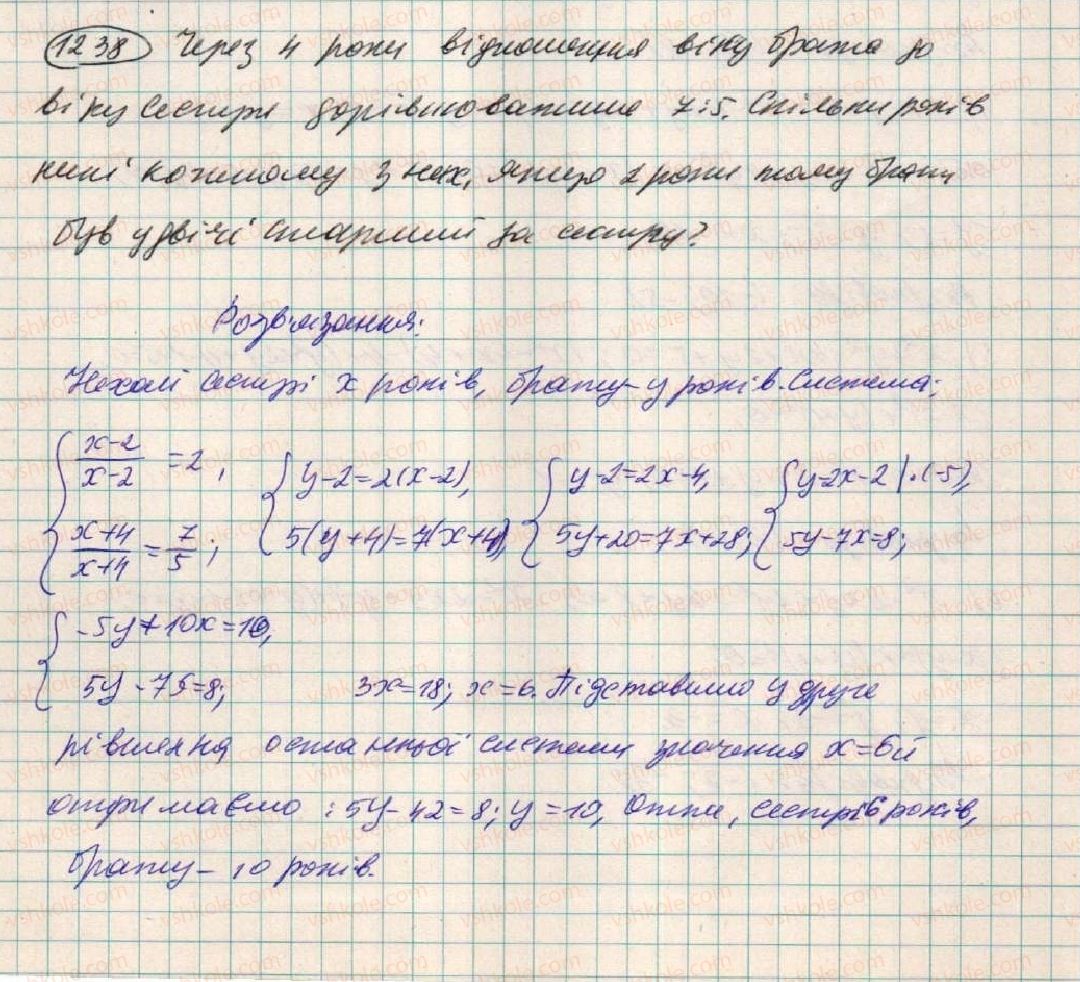 1238 Через 4 роки відношення віку брата до
віку сестри дорівнюватиме 7:5. Скільки років
нині кожному з них, якщо 2 роки тому брат
був удвічі старший за сестру?
Розв'язання:
Нехай сестрі x років, брату - y років. Система:
{ (x-2)/(x-2) = 2, { y-2=2(x-2), { y-2=2x-4, { y-2x-2 |·(-5),
(x+4)/(x+4) = 7/5; 5(y+4)=7(x+4), 5y+20=7x+28; 5y-7x=8;
{ -5y+10x=10,
5y-75=8; 3x=18; x=6. Підставимо у друге
рівняння останньої системи значення x=6 й
отримаємо: 5y-42=8; y=10, Отже, сестрі 6 років,
брату - 10 років.